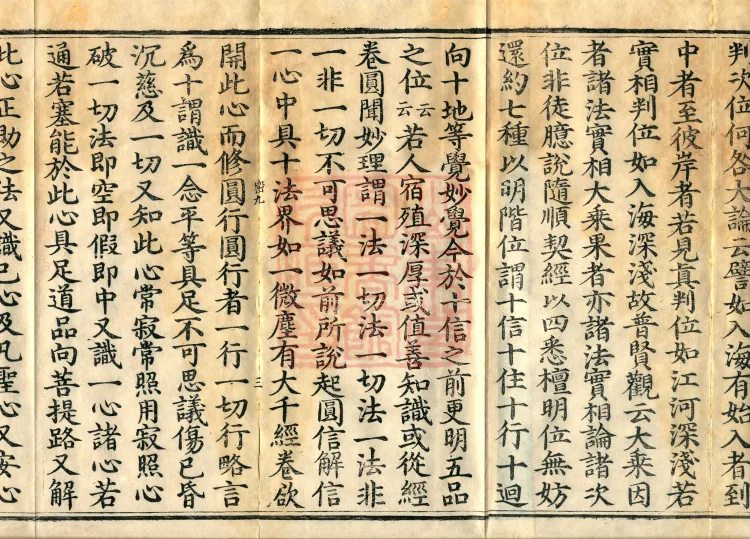 判次位何各大論云譬如入海有始入者到
中者至彼岸者若見真判位如江河深淺若
實相判位如入海深淺故普賢觀云大乘因
者諸法實相大乘果者亦諸法實相論諸次
位非徒臆說隨順契經以四悉檀明位無妨
還約七種以明階位謂十信十住十行十迴
向十地等覺妙覺今於十信之前更明五品
之位云云若人宿殖深厚或值善知識或從經
卷圓聞妙理謂一法一切法一切法一法非
一非一切不可思議如前所說起圓信解信
一心中具十法界如一微塵有大千經卷欲
密九 三
開此心而修圓行圓行者一行一切行略言
為十謂識一念平等具足不可思議傷已昏
沉慈及一切又知此心常寂常照用寂照心
破一切法即空即假即中又識一心諸心若
通若塞能於此心具足道品向菩提路又解
此心正助之法又識己心及凡聖心又安心